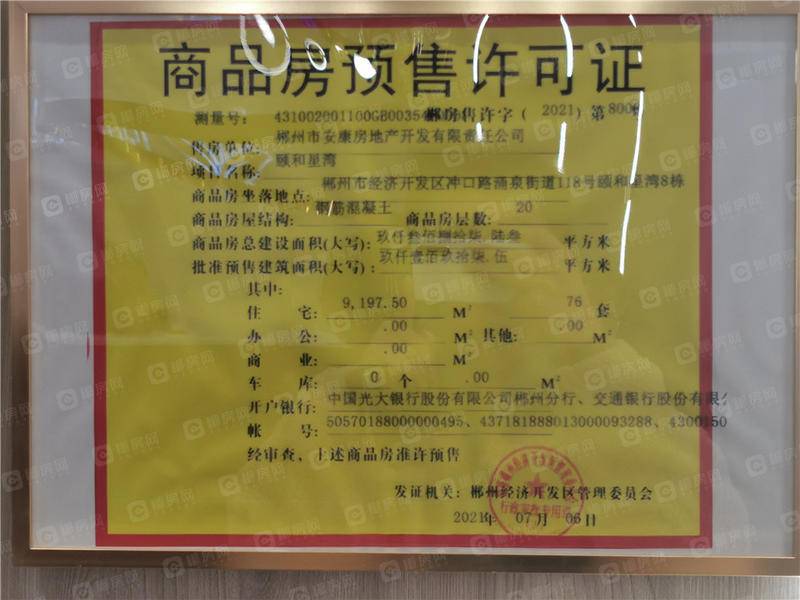 商品房预售许可证
测量号: 431002001100GB00354 郴房售许字( 2021) 第800
售房单位: 郴州市安康房地产开发有限责任公司
项目名称: 颐和星湾
商品房坐落地点: 郴州市经济开发区冲口路涌泉街道118号颐和星湾8栋
商品房屋结构: 钢筋混凝土 商品房层数: 20
商品房总建设面积(大写): 玖仟叁佰捌拾柒.陆叁 平方米
批准预售建筑面积(大写): 玖仟壹佰玖拾柒.伍 平方米
其中:
住 宅: 9,197.50 M² 76 套
办 公: .00 M² 其他: .00 M²
商 业: .00 M²
车 库: 0 个 .00 M²
开户银行: 中国光大银行股份有限公司郴州分行、交通银行股份有限公
帐 号: 50570188000000495、437181888013000093288、4300150
经审查，上述商品房准许预售
发证机关: 郴州经济开发区管理委员会
2021年 07月 06日
行政审批专用章
郴房网